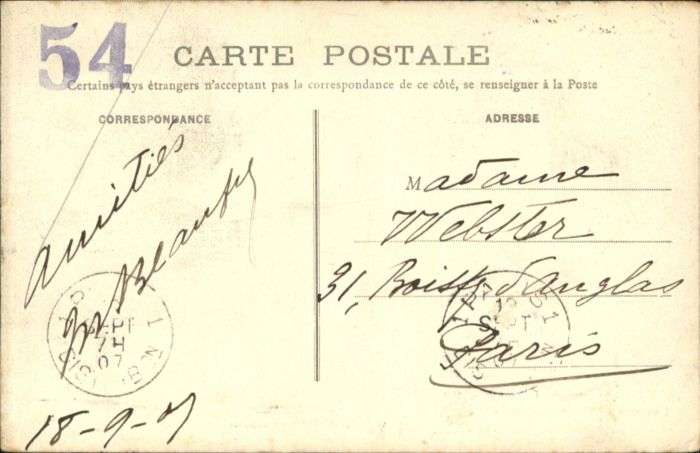 54
CARTE POSTALE
Certains pays étrangers n'acceptant pas la correspondance de ce côté, se renseigner à la Poste
CORRESPONDANCE
ADRESSE
Amitiés
18-9-07
Madame
Webster
31, Boissy d'Anglas
Paris
SEPT
7H
07